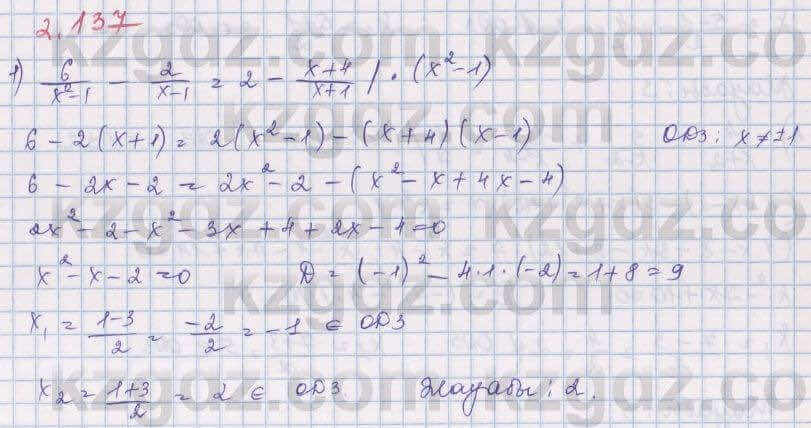 2.137
1) 6/(x²-1) - 2/(x-1) = 2 - (x+4)/(x+1) / · (x²-1)
6 - 2(x+1) = 2(x²-1) - (x+4)(x-1) ОДЗ: x≠±1
6 - 2x - 2 = 2x² - 2 - (x² - x + 4x - 4)
2x² - 2 - x² - 3x + 4 + 2x - 4 = 0
x² - x - 2 = 0 D = (-1)² - 4·1·(-2) = 1+8 = 9
x₁ = (1-3)/2 = -2/2 = -1 ∈ ОДЗ
x₂ = (1+3)/2 = 2 ∈ ОДЗ. Жауабы: 2.
kzgdz.co
kzgdz.co
kzgdz.co
kzgdz.co